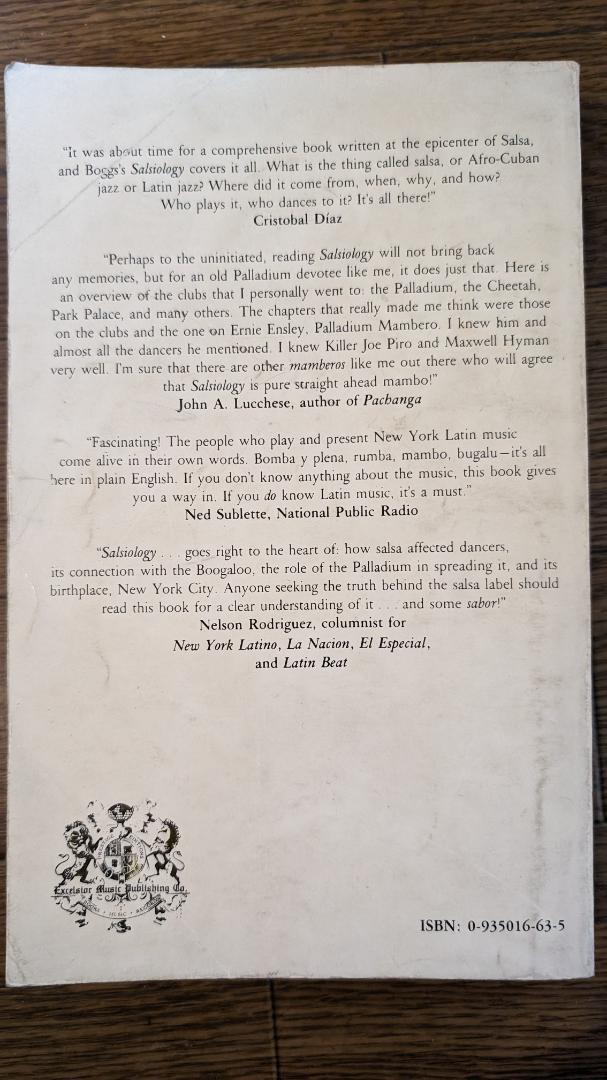 “It was about time for a comprehensive book written at the epicenter of Salsa,
and Boggs's Salsiology covers it all. What is the thing called salsa, or Afro-Cuban
jazz or Latin jazz? Where did it come from, when, why, and how?
Who plays it, who dances to it? It's all there!”
Cristobal Díaz
“Perhaps to the uninitiated, reading Salsiology will not bring back
any memories, but for an old Palladium devotee like me, it does just that. Here is
an overview of the clubs that I personally went to: the Palladium, the Cheetah,
Park Palace, and many others. The chapters that really made me think were those
on the clubs and the one on Ernie Ensley, Palladium Mambero. I knew him and
almost all the dancers he mentioned. I knew Killer Joe Piro and Maxwell Hyman
very well. I'm sure that there are other mamberos like me out there who will agree
that Salsiology is pure straight ahead mambo!”
John A. Lucchese, author of Pachanga
“Fascinating! The people who play and present New York Latin music
come alive in their own words. Bomba y plena, rumba, mambo, bugalu—it's all
here in plain English. If you don't know anything about the music, this book gives
you a way in. If you do know Latin music, it's a must.”
Ned Sublette, National Public Radio
“Salsiology . . . goes right to the heart of: how salsa affected dancers,
its connection with the Boogaloo, the role of the Palladium in spreading it, and its
birthplace, New York City. Anyone seeking the truth behind the salsa label should
read this book for a clear understanding of it . . . and some sabor!”
Nelson Rodriguez, columnist for
New York Latino, La Nacion, El Especial,
and Latin Beat
Excelsior Music Publishing Co.
MUSIC
ISBN: 0-935016-63-5